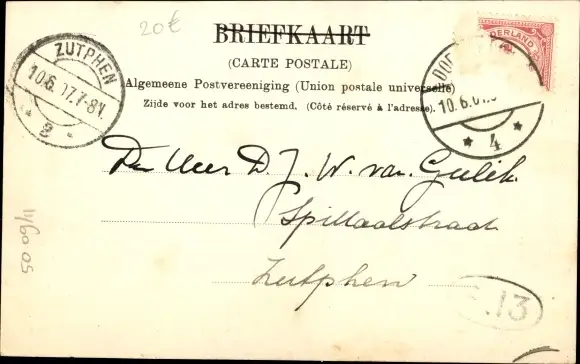 20€
BRIEFKAART
(CARTE POSTALE)
Algemeene Postvereeniging (Union postale universelle)
Zijde voor het adres bestemd. (Côté réservé à l'adresse).
ZUTPHEN
10.6.07.7-8V.
2
DERLAND
10.6.07.
4
Den Heer D. J. W. van Gulik.
Spittaalstraat
Zutphen
.13